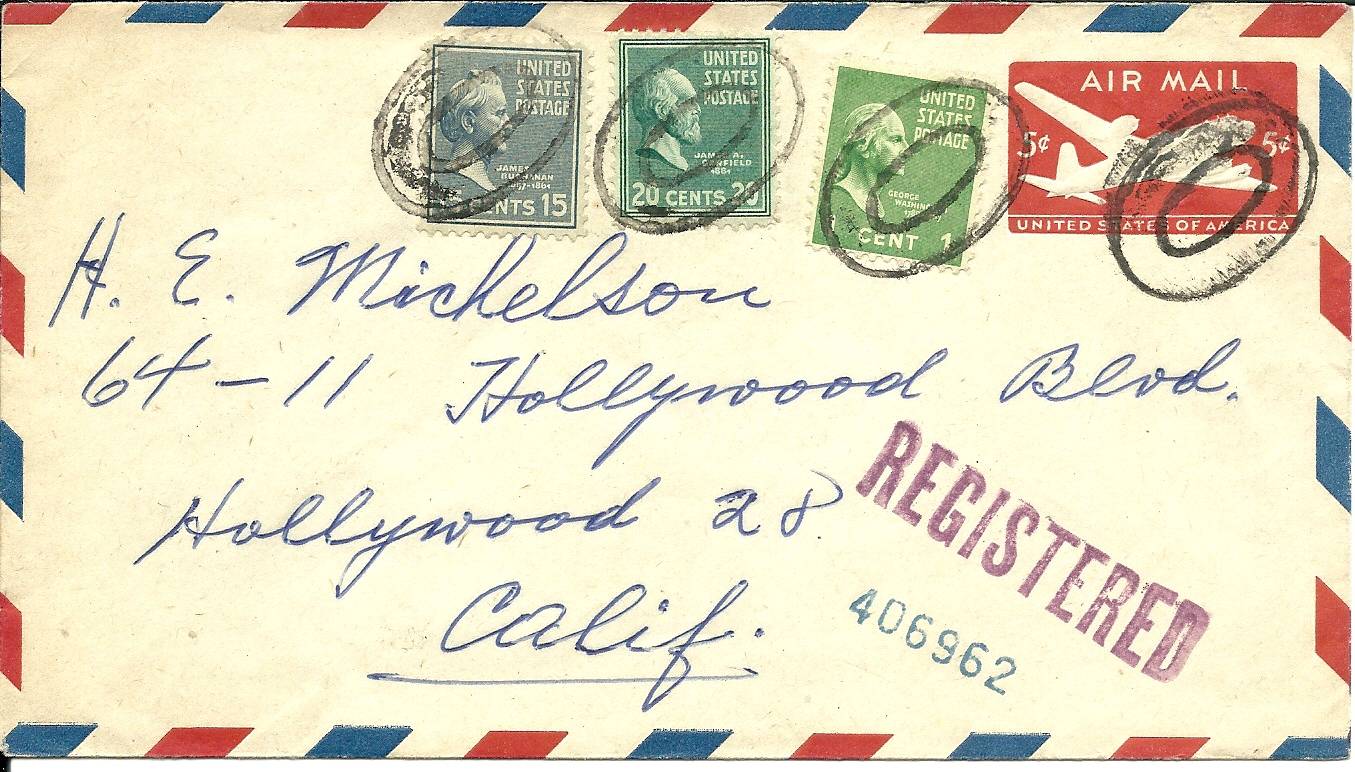 UNITED
STATES
POSTAGE
JAMES
BUCHANAN
1857-1861
CENTS 15
UNITED
STATES
POSTAGE
JAMES A.
GARFIELD
1881
20 CENTS 20
UNITED
STATES
POSTAGE
GEORGE
CENT 1
AIR MAIL
5¢ 5¢
UNITED STATES OF AMERICA
H. E. Michelson
64-11 Hollywood Blvd.
Hollywood 28
Calif.
REGISTERED
406962